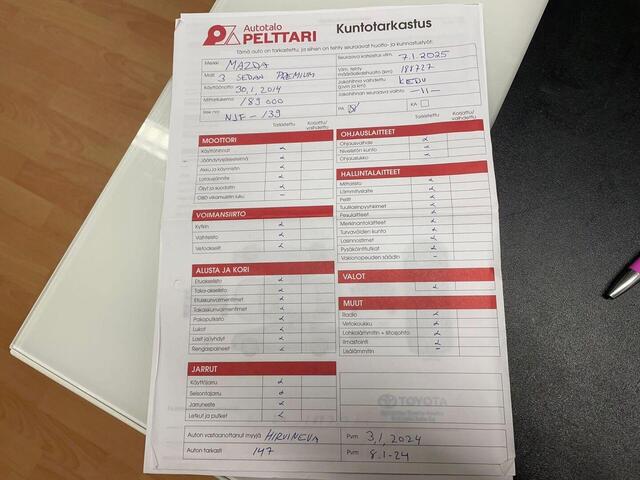 Autotalo
PELTTARI
Kuntotarkastus
Tämä auto on tarkastettu, ja siihen on tehty seuraavat huolto- ja kunnostustyöt:
Merkki MAZDA
Malli 3 SEDAN PREMIUM
Käyttöönotto 30,1,2014
Mittarilukema 189 000
Rek nro NJF-139
Seuraava katsastus viim. 7.1.2025
Viim. tehty määräaikaishuolto (km) 188727
Jakohihna vaihdettu (pvm ja km) KETJU
Jakohihnan seuraava vaihto -11-
PA
KA
Tarkastettu
Korjattu/vaihdettu
MOOTTORI
Käyttöhihnat
Jäähdytysjärjestelmä
Akku ja käynnistin
Latausjännite
Öljyt ja suodatin
OBD vikamuistin luku –
VOIMANSIIRTO
Kytkin
Vaihteisto
Vetoakselit
ALUSTA JA KORI
Etuakselisto
Taka-akselisto
Etuiskunvaimentimet
Takaiskunvaimentimet
Pakoputkisto
Lukot
Lasit ja lyhdyt
Rengaspaineet
JARRUT
Käyttöjarru
Seisontajarru
Jarruneste
Letkut ja putket
Tarkastettu
Korjattu/vaihdettu
OHJAUSLAITTEET
Ohjausvaihde
Nivelistön kunto
Ohjauslukko
HALLINTALAITTEET
Mittaristo
Lämmityslaite
Peilit
Tuulilasinpyyhkimet
Pesulaitteet
Merkinantolaitteet
Turvavöiden kunto
Lasinnostimet
Pysäköintitutkat
Vakionopeuden säädin –
VALOT
MUUT
Radio
Vetokoukku
Lohkolämmitin + liitosjohto
Ilmastointi
Lisälämmitin –
TOYOTA
Auton vastaanottanut myyjä HIRVINEVA
Pvm 3,1,2024
Auton tarkasti 147
Pvm 8.1-24